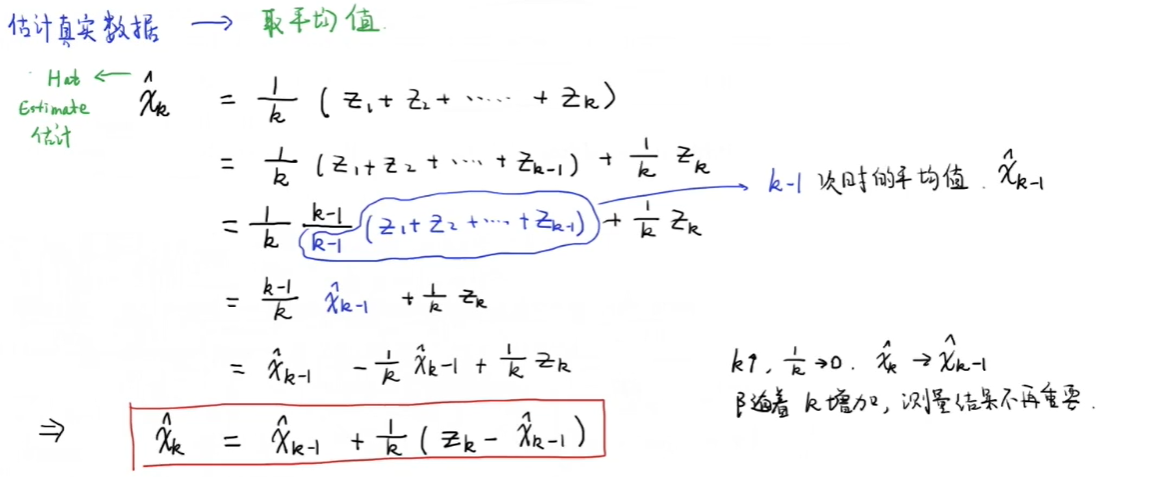 估计真实数据 → 取平均值.
Hat ← x̂ₖ = 1/k ( z₁ + z₂ + ····· + zₖ )
Estimate
估计
= 1/k ( z₁ + z₂ + ···· + zₖ₋₁ ) + 1/k zₖ
= 1/k (k-1)/(k-1) ( z₁ + z₂ + ··· + zₖ₋₁ ) + 1/k zₖ → k-1 次时的平均值. x̂ₖ₋₁
= (k-1)/k x̂ₖ₋₁ + 1/k zₖ
= x̂ₖ₋₁ - 1/k x̂ₖ₋₁ + 1/k zₖ
k↑, 1/k → 0. x̂ₖ → x̂ₖ₋₁
随着 k 增加, 测量结果不再重要.
⇒ x̂ₖ = x̂ₖ₋₁ + 1/k ( zₖ - x̂ₖ₋₁ )